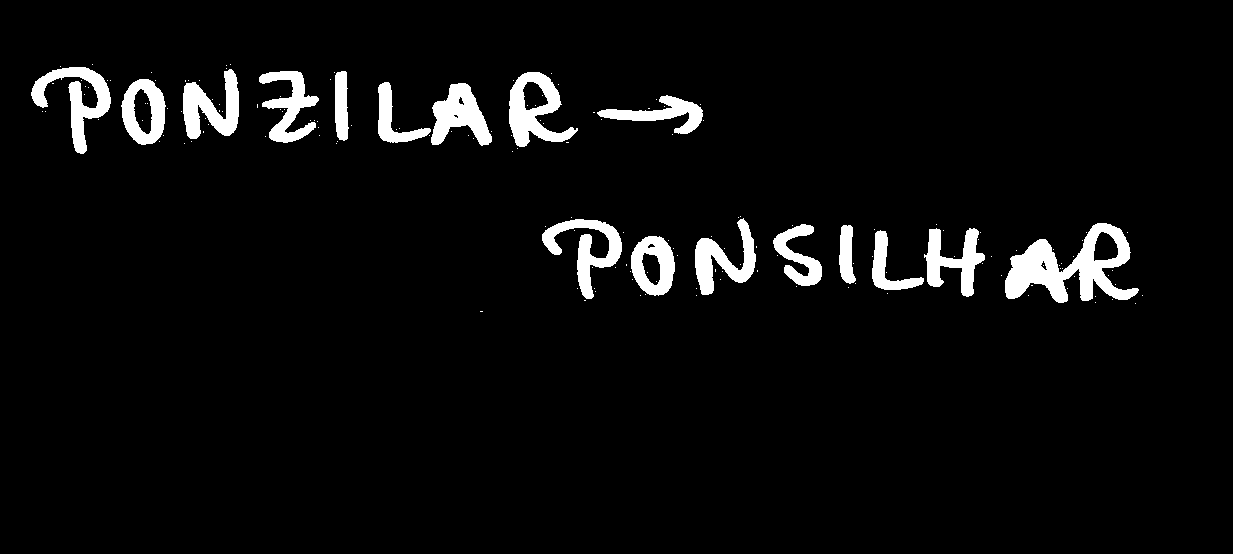 PONZILAR →
PONSILHAR